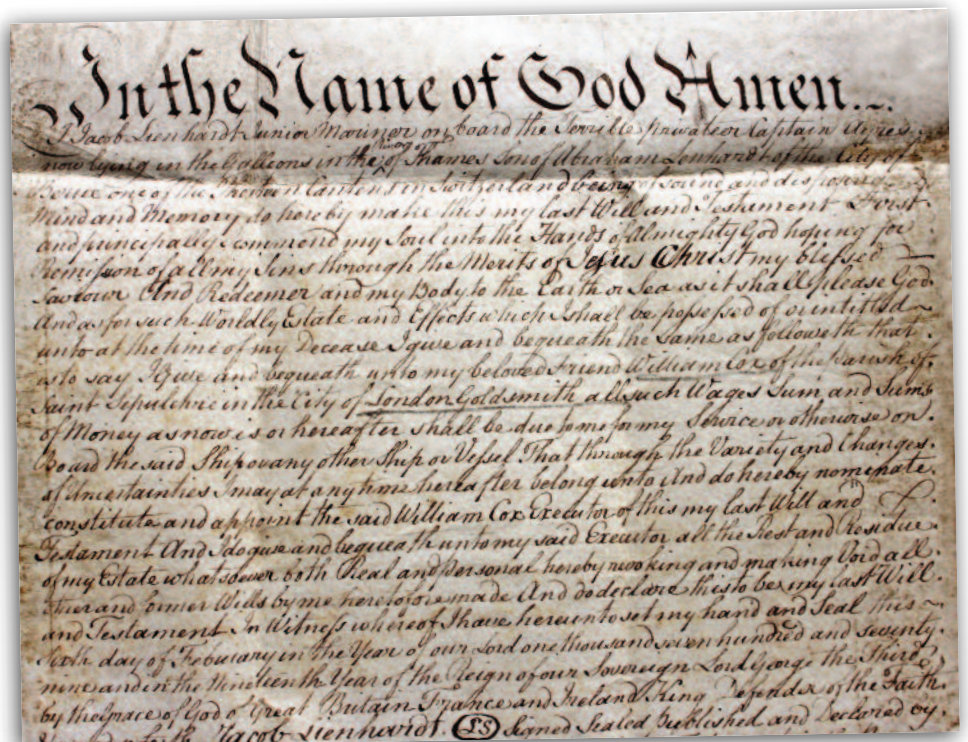 In the Name of God Amen...
I Jacob Lienhardt Junior Mariner on board the Terrible privateer Captain Ayres
now lying in the Galleons in the River of Thames Son of Abraham Lienhardt of the City of
one of the Thirteen Cantons in Switzerland being of sound and disposing
Mind and Memory do hereby make this my last Will and Testament First
and principally I commend my Soul into the Hands of Almighty God hoping for
Remission of all my Sins through the Merits of Jesus Christ my blessed
Saviour And Redeemer and my Body to the Earth or Sea as it shall please God
And as for such Worldly Estate and Effects which I shall be possessed of or intitled
unto at the time of my Decease I give and bequeath the same as followeth that
is to say I Give and bequeath unto my beloved Friend William Cox of the Parish of
Saint Sepulchre in the City of London Goldsmith all such Wages Sum and Sums
of Money as now is or hereafter shall be due to me for my Service or otherwise on
Board the said Ship or any other Ship or Vessel That through the Variety and Changes
of Uncertainties I may at any time hereafter belong unto And do hereby nominate
constitute and appoint the said William Cox Executor of this my last Will and
Testament And I do give and bequeath unto my said Executor all the Rest and Residue
of my Estate whatsoever both Real and personal hereby revoking and making Void all
other and former Wills by me heretofore made And do declare this to be my last Will
and Testament In Witness whereof I have hereunto set my hand and Seal this
Sixth day of February in the Year of our Lord one thousand seven hundred and seventy
nine and in the Nineteenth Year of the Reign of our Sovereign Lord George the Third
by the Grace of God of Great Britain France and Ireland King Defender of the Faith
Jacob Lienhardt. LS Signed Sealed Published and Declared by